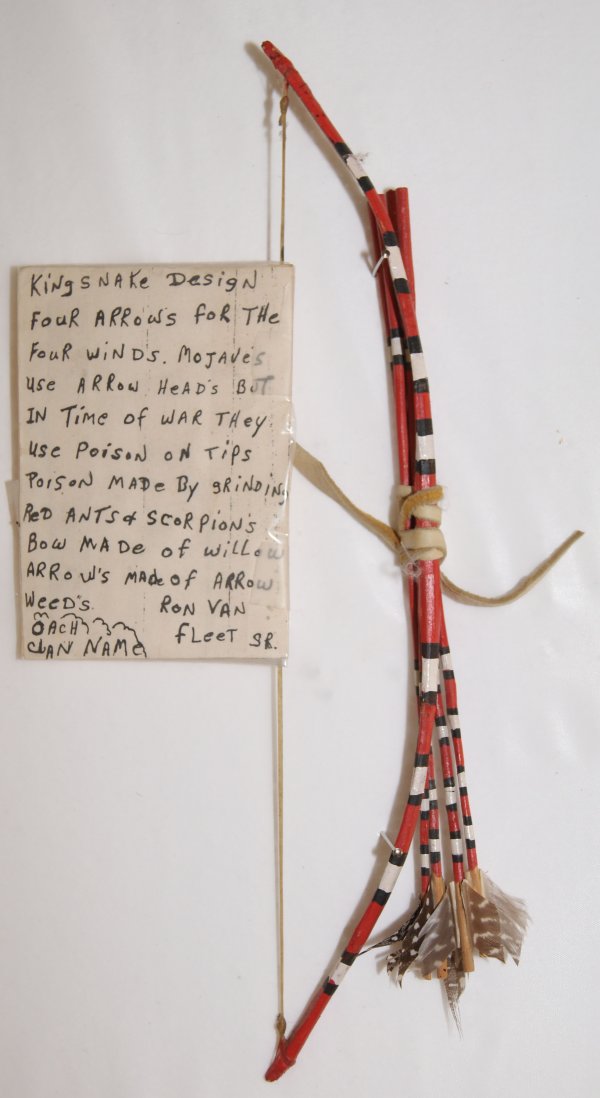 KingSNAKe DesigN
FOUR ARROWS FOR THe
FOUR WiNDS. MOJAVe's
Use ARROW HeAD's BUT
IN Time of WAR THey
Use POisON ON TiPS
POisON MADe By gRiNDiNg
ReD ANTS & SCORPiON's
BOW MADe of WiLLOW
ARROW'S MADe of ARROW
WeeD's RON VAN
OACH FLeeT SR.
CLAN NAMe